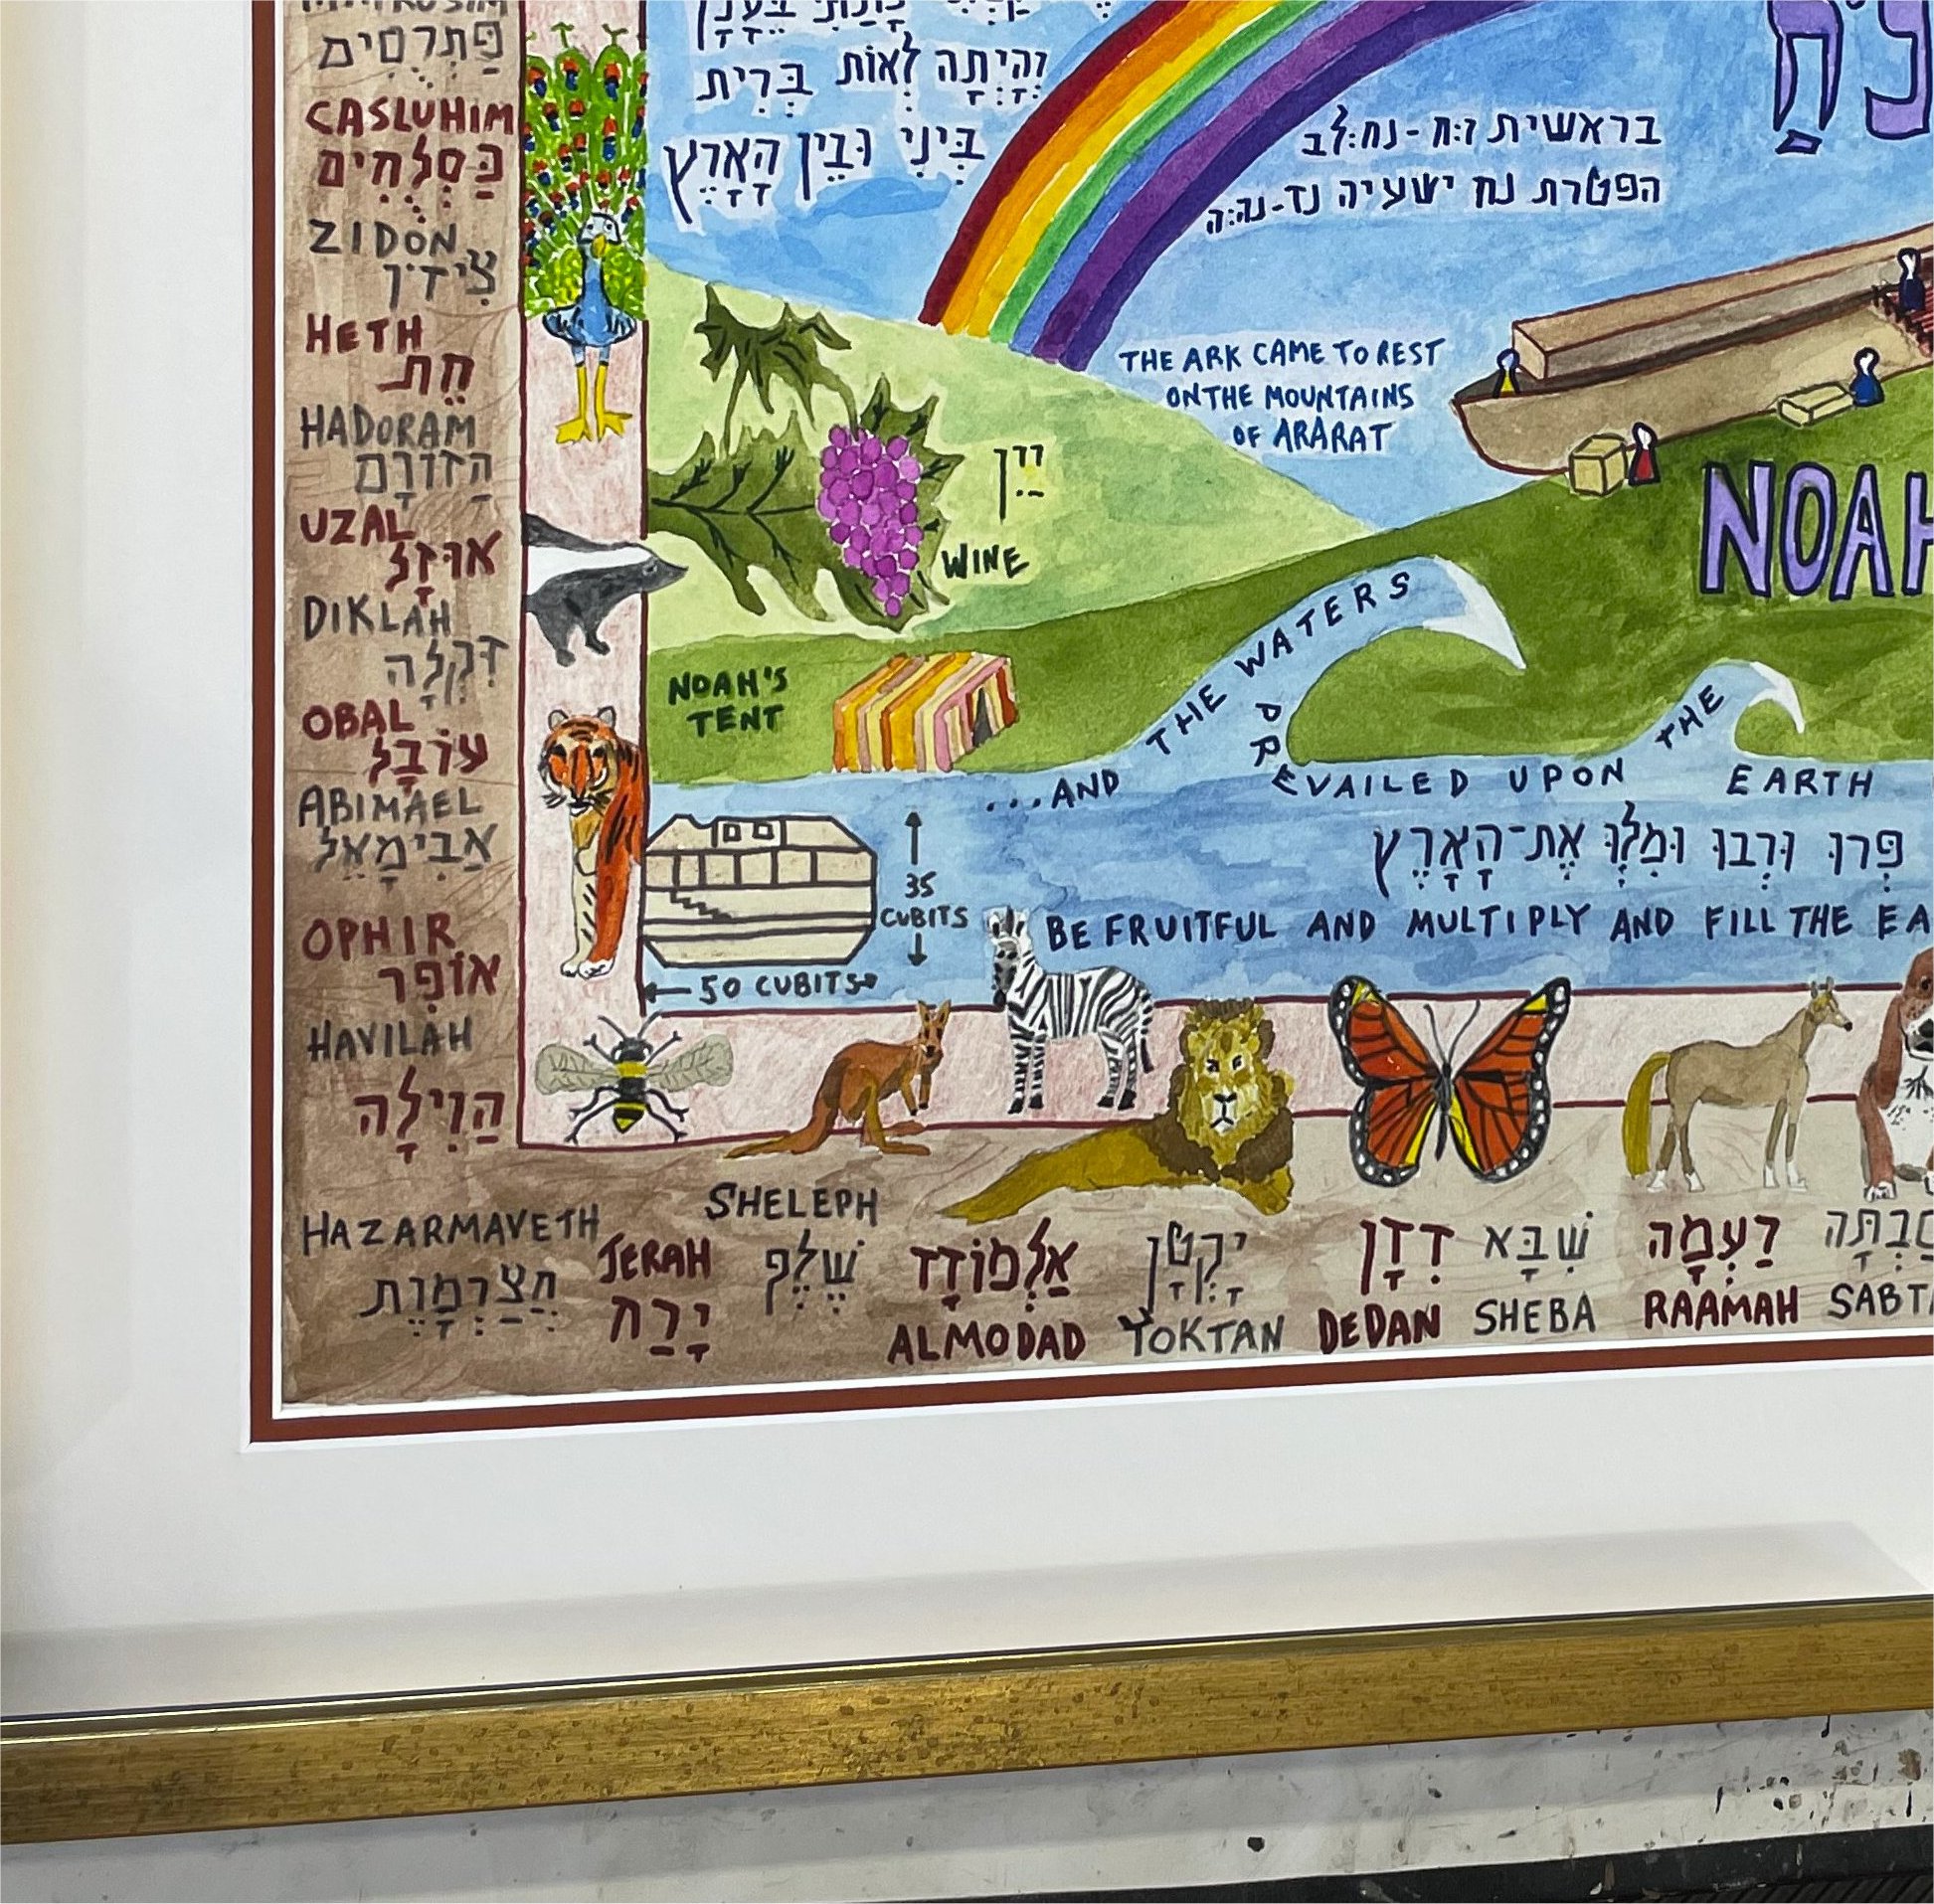 פַּתְרֻסִים
CASLUHIM
כַּסְלֻחִים
ZIDON
צִידֹן
HETH
חֵת
HADORAM
הֲדוֹרָם
UZAL
אוּזָל
DIKLAH
דִּקְלָה
OBAL
עוֹבָל
ABIMAEL
אֲבִימָאֵל
OPHIR
אוֹפִר
HAVILAH
הַוִילָה
HAZARMAVETH
חֲצַרְמָוֶת
JERAH
יָרַח
SHELEPH
שֶׁלֶף
אַלְמוֹדָד
ALMODAD
יָקְטָן
YOKTAN
דְדָן
DEDAN
שְׁבָא
SHEBA
רַעְמָה
RAAMAH
וְהָיְתָה לְאוֹת בְּרִית
בֵּינִי וּבֵין הָאָרֶץ
בראשית ו:ח-נח:לב
הפטרת נח ישעיה נד-נה:ה
THE ARK CAME TO REST
ON THE MOUNTAINS
OF ARARAT
יַיִן
WINE
NOAH
NOAH'S
TENT
...AND THE WATERS
PREVAILED UPON THE EARTH
פְּרוּ וּרְבוּ וּמִלְאוּ אֶת־הָאָרֶץ
BE FRUITFUL AND MULTIPLY AND FILL THE
35
CUBITS
50 CUBITS